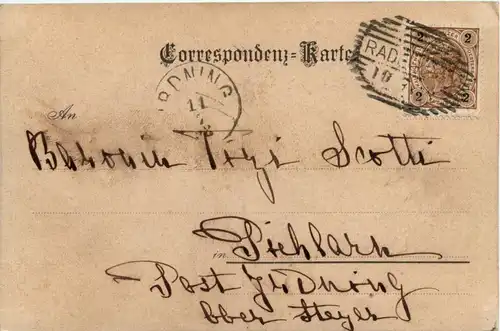 Correspondenz-Karte
2 2
RAD
10
2 2
IRDNING
11
An
Baronin Pizzi Scotti
in Pichlarn
Post Irdning
Ober Steyer